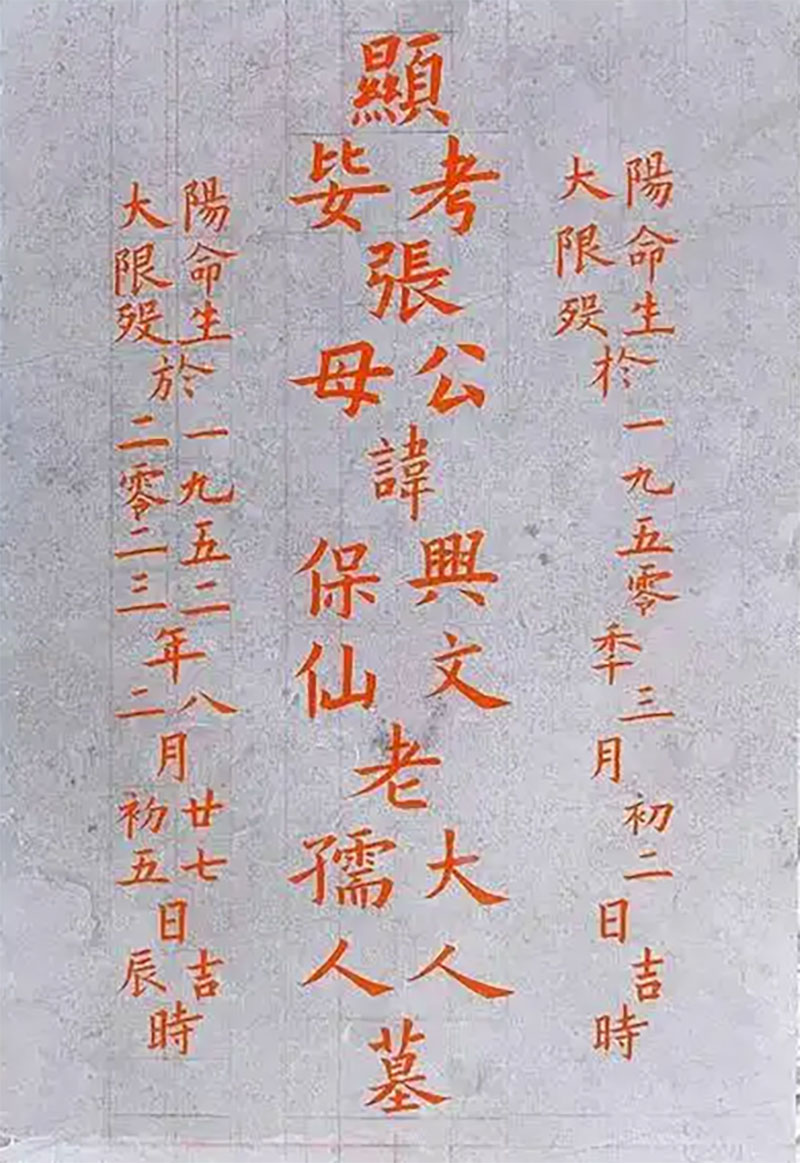 陽命生於一九五零秊三月初二日吉時
大限殁
顯考張公諱興文老大人墓
妣母保仙孺人
陽命生於一九五二年八月廿七日吉時
大限殁二零二三二初五辰